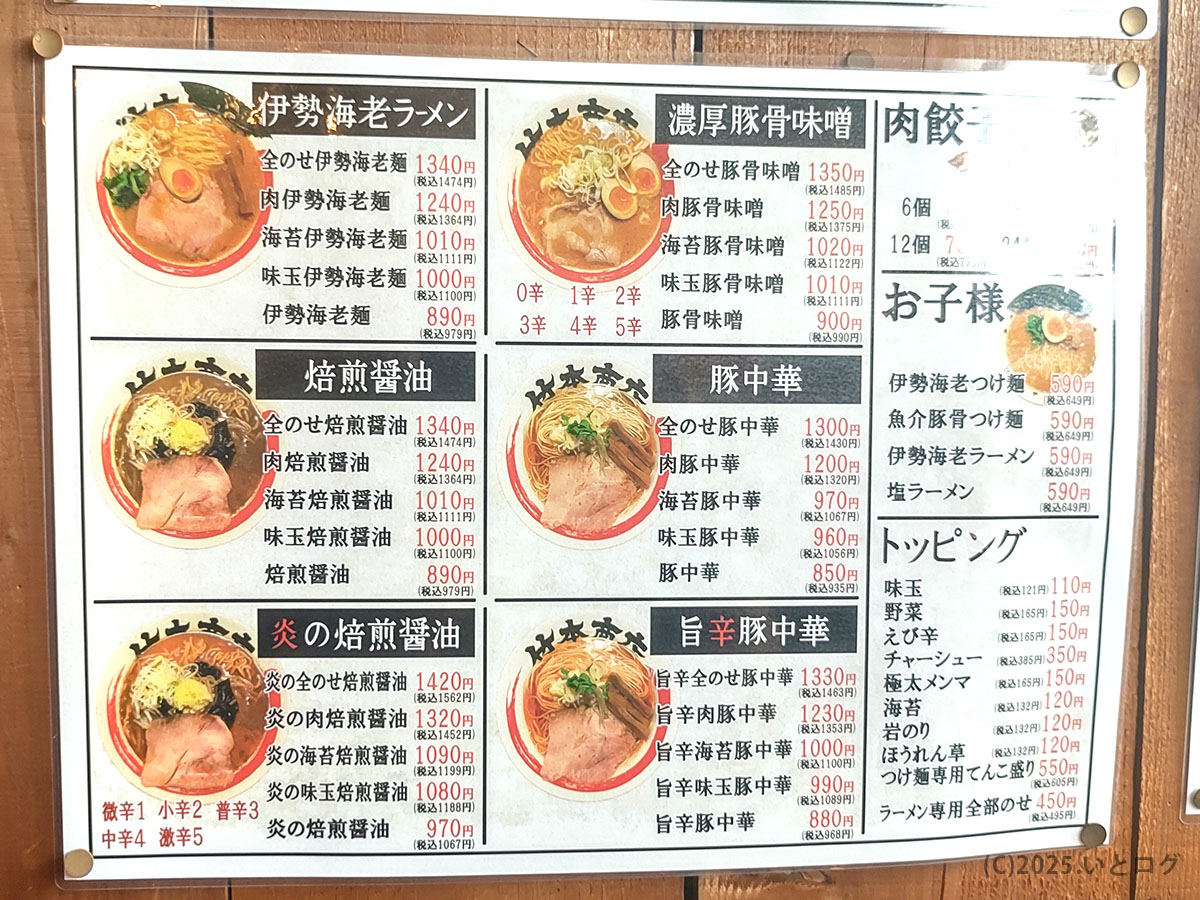 伊勢海老ラーメン
全のせ伊勢海老麺 1340円
(税込1474円)
肉伊勢海老麺 1240円
(税込1364円)
海苔伊勢海老麺 1010円
(税込1111円)
味玉伊勢海老麺 1000円
(税込1100円)
伊勢海老麺 890円
(税込979円)
焙煎醤油
全のせ焙煎醤油 1340円
(税込1474円)
肉焙煎醤油 1240円
(税込1364円)
海苔焙煎醤油 1010円
(税込1111円)
味玉焙煎醤油 1000円
(税込1100円)
焙煎醤油 890円
(税込979円)
炎の焙煎醤油
炎の全のせ焙煎醤油 1420円
(税込1562円)
炎の肉焙煎醤油 1320円
(税込1452円)
炎の海苔焙煎醤油 1090円
(税込1199円)
炎の味玉焙煎醤油 1080円
(税込1188円)
炎の焙煎醤油 970円
(税込1067円)
微辛1 小辛2 普辛3
中辛4 激辛5
濃厚豚骨味噌
全のせ豚骨味噌 1350円
(税込1485円)
肉豚骨味噌 1250円
(税込1375円)
海苔豚骨味噌 1020円
(税込1122円)
味玉豚骨味噌 1010円
(税込1111円)
豚骨味噌 900円
(税込990円)
0辛 1辛 2辛
3辛 4辛 5辛
豚中華
全のせ豚中華 1300円
(税込1430円)
肉豚中華 1200円
(税込1320円)
海苔豚中華 970円
(税込1067円)
味玉豚中華 960円
(税込1056円)
豚中華 850円
(税込935円)
旨辛豚中華
旨辛全のせ豚中華 1330円
(税込1463円)
旨辛肉豚中華 1230円
(税込1353円)
旨辛海苔豚中華 1000円
(税込1100円)
旨辛味玉豚中華 990円
(税込1089円)
旨辛豚中華 880円
(税込968円)
肉餃子
6個
12個
お子様
伊勢海老つけ麺 590円
(税込649円)
魚介豚骨つけ麺 590円
(税込649円)
伊勢海老ラーメン 590円
(税込649円)
塩ラーメン 590円
(税込649円)
トッピング
味玉 (税込121円) 110円
野菜 (税込165円) 150円
えび辛 (税込165円) 150円
チャーシュー (税込385円) 350円
極太メンマ (税込165円) 150円
海苔 (税込132円) 120円
岩のり (税込132円) 120円
ほうれん草 (税込132円) 120円
つけ麺専用てんこ盛り 550円
(税込605円)
ラーメン専用全部のせ 450円
(税込495円)
(C)2025.いとログ